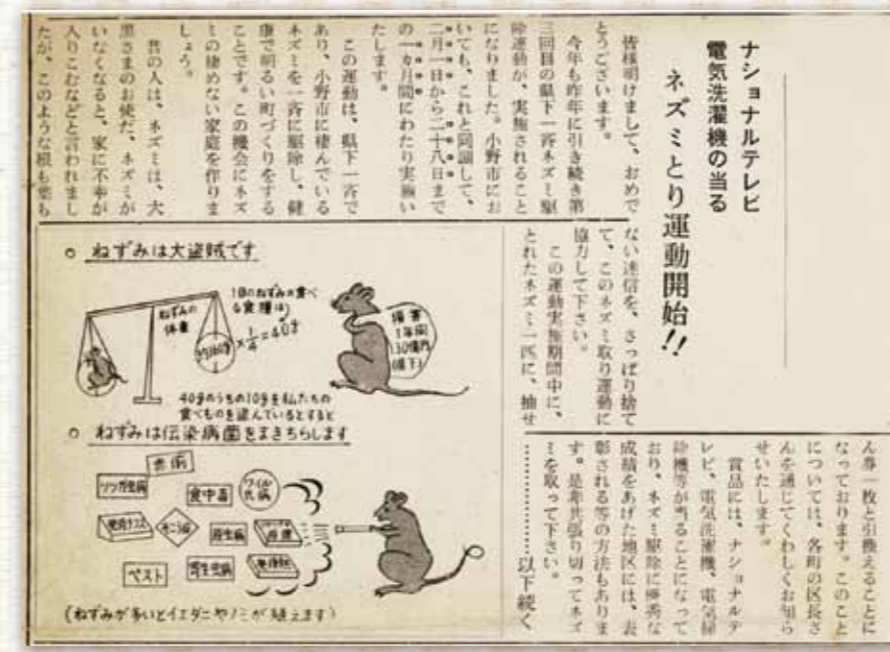 ナショナルテレビ
電気洗濯機の当る
ネズミとり運動開始!!
皆様明けまして、おめで
とうございます。
今年も昨年に引き続き第
三回目の県下一斉ネズミ駆
除運動が、実施されること
になりました。小野市にお
いても、これと同調して、
二月一日から二十八日まで
の一カ月間にわたり実施い
たします。
この運動は、県下一斉で
あり、小野市に棲んでいる
ネズミを一斉に駆除し、健
康で明るい町づくりをする
ことです。この機会にネズ
ミの棲めない家庭を作りま
しょう。
昔の人は、ネズミは、大
黒さまのお使だ、ネズミが
いなくなると、家に不幸が
入りこむなどと言われまし
たが、このような根も葉も
ない迷信を、さっぱり捨て
て、このネズミ取り運動に
協力して下さい。
この運動実施期間中に、
とれたネズミ一匹に、抽せ
ん券一枚と引換えることに
なっております。このこと
については、各町の区長さ
んを通じてくわしくお知ら
せいたします。
賞品には、ナショナルテ
レビ、電気洗濯機、電気掃
除機等が当ることになって
おり、ネズミ駆除に優秀な
成績をあげた地区には、表
彰される等の方法もありま
す。是非共張り切ってネズ
ミを取って下さい。
……………以下続く
○ ねずみは大盗賊です
ねずみの
体重
1日のねずみの食べ
る食糧は
×1/4=40g
損害
1年間
130億円
(県下)
40gのうちの10gを私たちの
食べものを盗んでいるとすると
○ ねずみは伝染病菌をまきちらします
赤痢
ツツガ虫病
食中毒
ワイル
氏病
発疹チフス
そこう症
寄生虫病
ペスト
(ねずみが多いとイエダニやノミが殖えます)